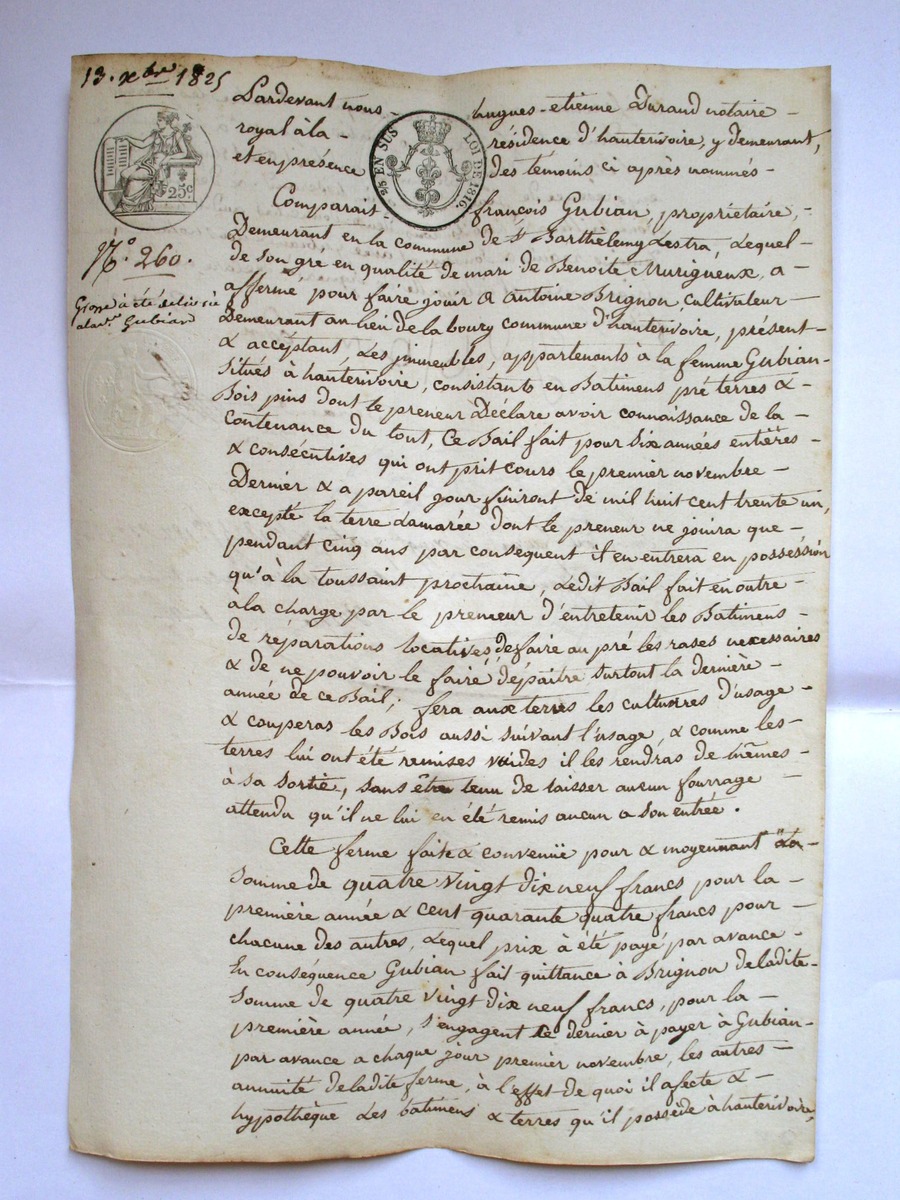 13. xbre 1825
Pardevant nous - hugues-etienne Durand notaire
royal à la - résidence d'hauterivoire, y demeurant,
et en présence des témoins ci après nommés -
25 c
2/5 EN SUS LOI DE 1816.
Comparait - françois Gubian, propriétaire, -
N.o 260.
Demeurant en la commune de St Barthèlemy Lestra, Lequel -
de son gré en qualité de mari de Benoite Murigneux, a -
Grosse à été délivrée
Gubian
affermé pour faire jouir à antoine Brignon Cultivateur -
Demeurant au lieu de la boury commune d'hauterivoire, présent -
& accéptant, Les immeubles, appartenants à la femme Gubian -
Situés à hauterivoire, consistants en Batimens pré terres & -
Bois pins dont le preneur Déclare avoir connaissance de la -
Contenance du tout, Ce Bail fait pour Six années entières -
& consécutives qui ont prit cours le premier novembre -
Dernier & a pareil jour finiront de mil huit cent trente un,
excepté la terre Lamarée dont le preneur ne jouira que -
pendant cinq ans par consequent il en entrera en possession
qu'à la toussaint prochaine, Ledit Bail fait en outre -
à la charge par le preneur d'entretenir les Batimens -
de réparations locatives, de faire au pré les rases necessaires
& de ne pouvoir le faire dépaitre surtout la dernière -
année de ce Bail; fera aux terres les cultures d'usage -
& couperas les Bois aussi suivant l'usage, & comme les -
terres lui ont été remises vuides il les rendras de mêmes -
à sa sortie, sans être tenu de laisser aucun fourrage -
attendu qu'il ne lui en été remis aucun a son entrée.
Cette ferme faite & convenüe pour & moyennant La -
Somme de quatre vingt dix neuf francs pour la -
première année & cent quarante quatre francs pour -
chacune des autres, Lequel prix à été payé par avance -
En conséquence Gubian fait quittance à Brignon de ladite -
Somme de quatre vingt dix neuf francs, pour la -
première année, s'engagent Le dernier à payer à Gubian -
par avance a chaque jour premier novembre, les autres -
annuité de ladite ferme, à l'effet de quoi il afecte & -
hypothèque Les batimens & terres qu'il possède à hauterivoire,